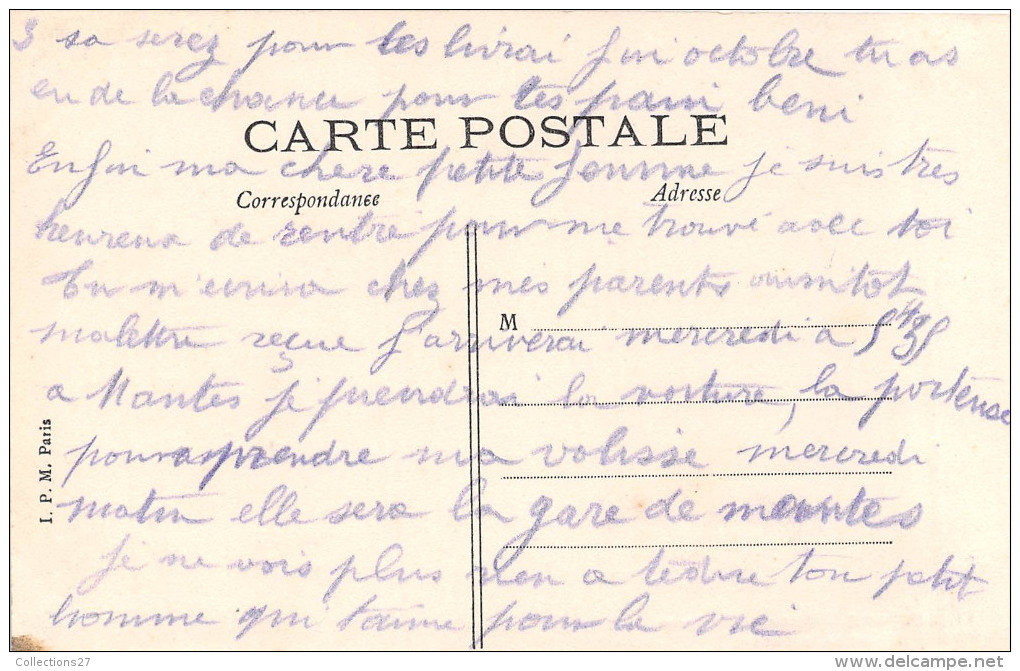 3 sa serez pour les livrai fin octobre tu as
eu de la chance pour tes pain beni
CARTE POSTALE
Enfin ma chere petite femme je suis tres
Correspondance Adresse
heureux de rentré pour me trouvé avec toi
Tu m'ecrira chez mes parents aussitot
M
ma lettre reçue J'arriverai mercredi a 5 h 35
a Mantes je prendrai la voiture, la porteuse
pourra prendre ma valisse mercredi
matin elle sera la gare de mantes
Je ne vois plus rien a te dire ton petit
homme qui t'aime pour la vie
I. P. M. Paris
Collections27
delcampe.net